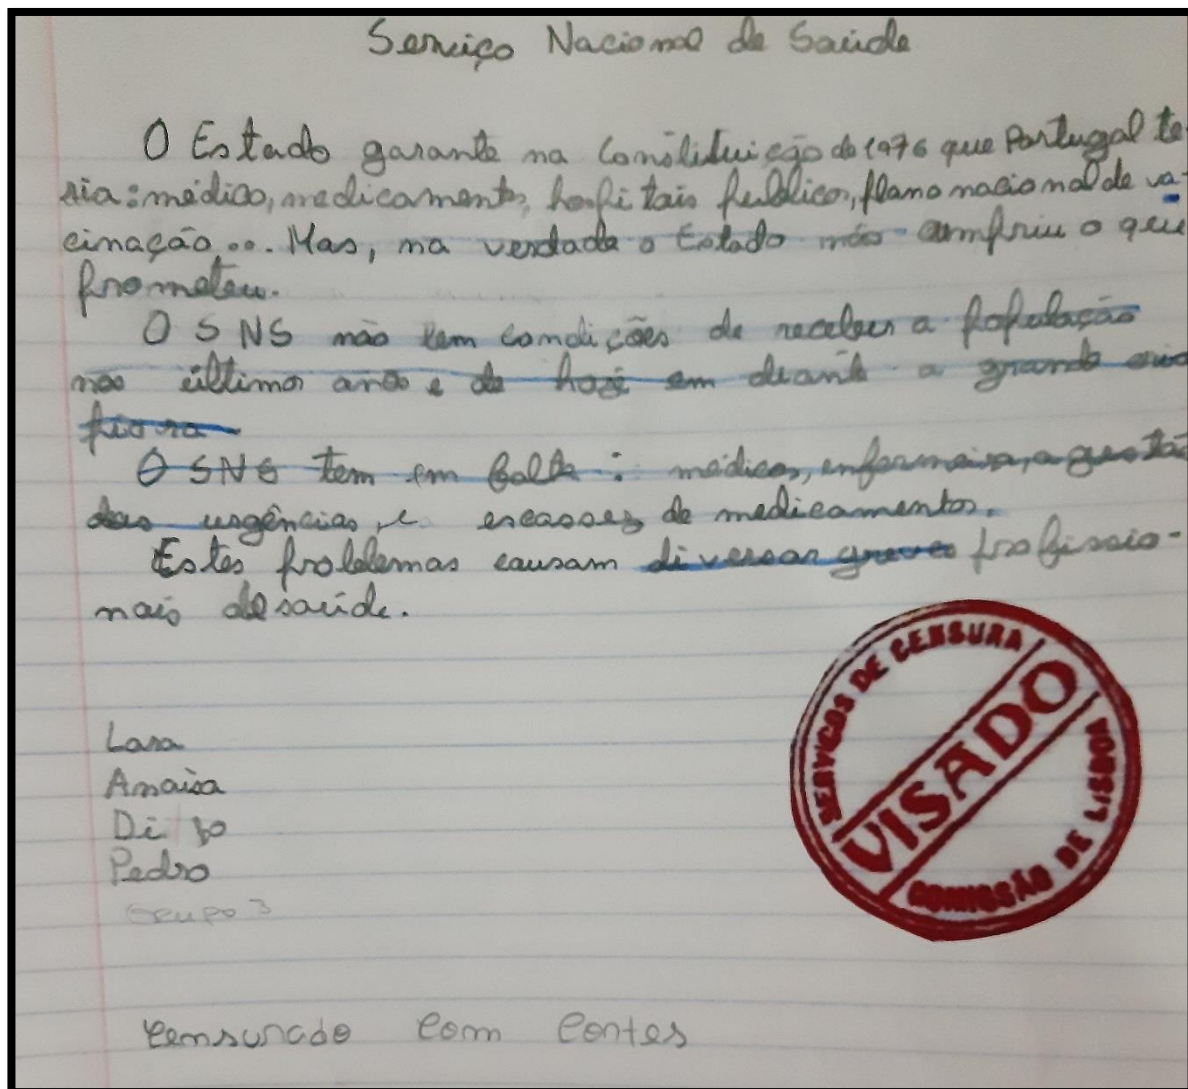 Serviço Nacional de Saúde
O Estado garante na Constituição de 1976 que Portugal te-
ria: médico, medicamento, hospitais publico, plano nacional de va-
cinação... Mas, na verdade o Estado não cumpriu o que
prometeu.
O SNS não tem condições de receber a população
nos últimos anos e de hoje em diante a grande
piora
O SNS tem em falta : médicos, enfermeiros, a gestão
das urgências, e escassez de medicamentos.
Estes problemas causam diversas greves profissio-
nais de saúde.
Lara
Anaisa
Pedro
Grupo 3
SERVIÇOS DE CENSURA
VISADO
COMISSÃO DE LISBOA
censurado com cortes